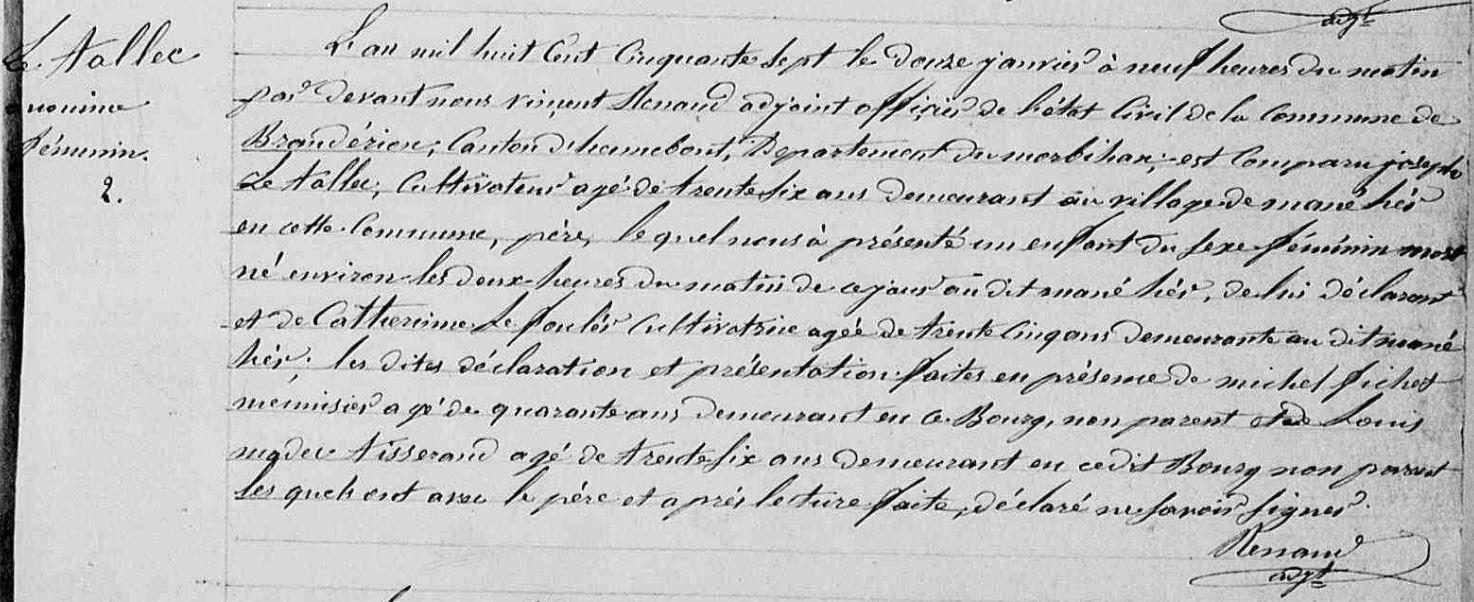 adjt
Le Tallec
anonime
féminin.
2.
L'an mil huit Cent Cinquante Sept le Douze janvier à neuf heures du matin
par Devant nous vincent Renaud adjoint officier de l'état Civil de la Commune de
Brandérion, Canton d'hennebont, Departement du morbihan, est Comparu joseph
Le Tallec, Cultivateur agé de trente Six ans demeurant au village de mané hér
en cette Commune, père, lequel nous à présenté un enfant du Sexe féminin mort
né environ les deux heures du matin de ce jour au dit mané hér, de lui déclarant
et de Catherinne Le foulér Cultivatrice agée de trente Cinq ans demeurante au dit mané
hér; les dites déclaration et présentation faites en présence de michel fichet
menuisier agé de quarante ans demeurant en ce Bourg, non parent et de Louis
madec tisserand agé de trente Six ans demeurant en cedit Bourg non parent
les quels ont avec le père et après lecture faite, déclaré ne Savoir Signer.
Renaud
adjt